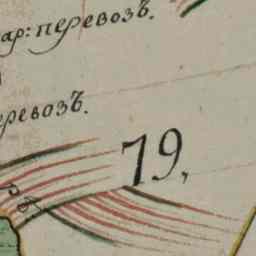 ар: перевозъ.
еревозъ.
79,
рѣ